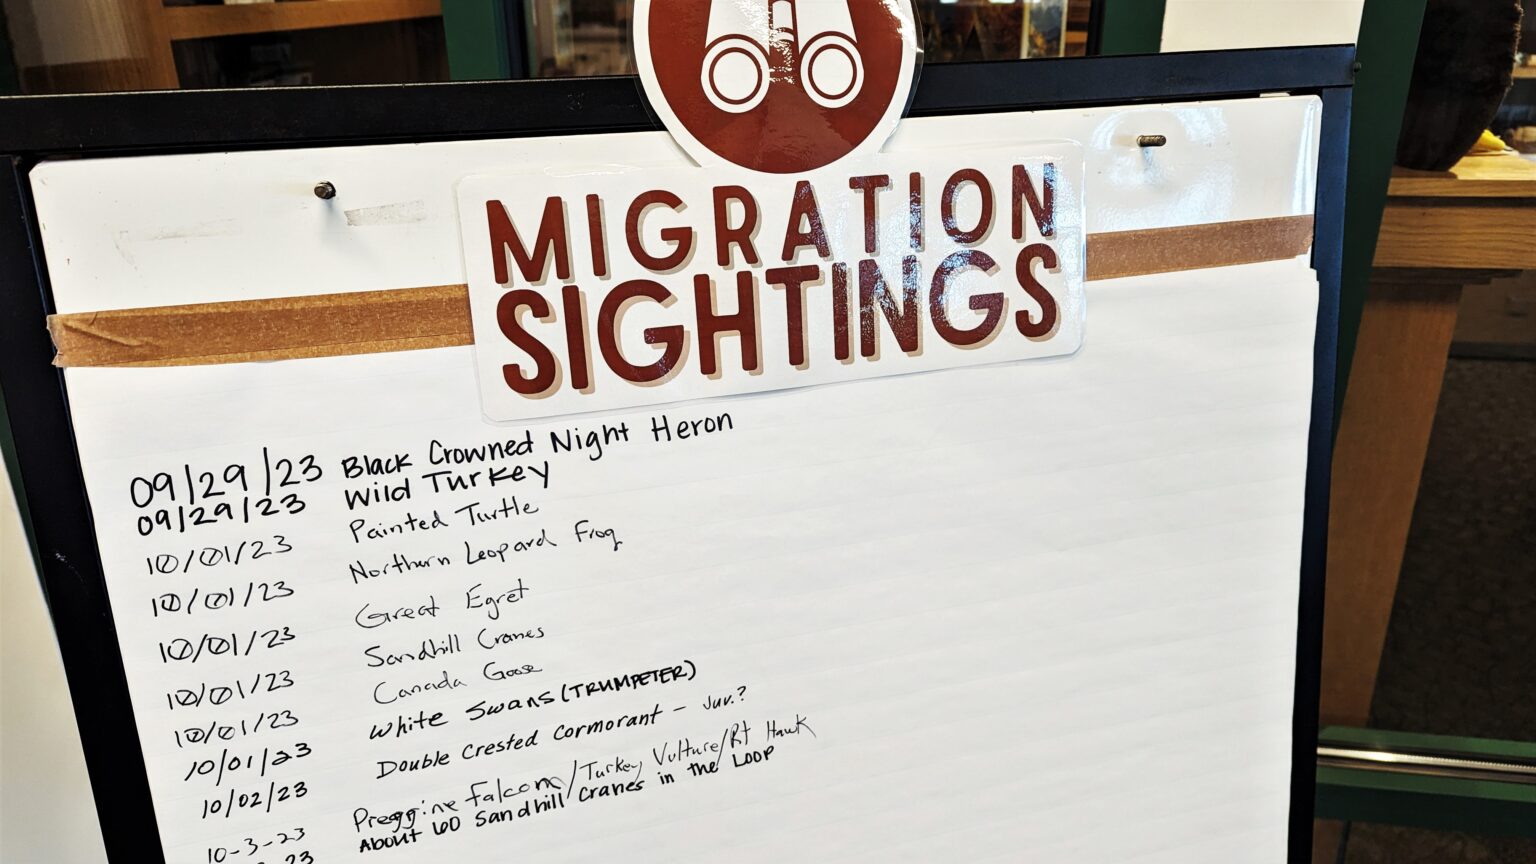 MIGRATION
SIGHTINGS
09/29/23 Black Crowned Night Heron
09/29/23 Wild Turkey
10/01/23 Painted Turtle
10/01/23 Northern Leopard Frog
10/01/23 Great Egret
10/01/23 Sandhill Cranes
10/01/23 Canada Goose
10/01/23 White Swans (TRUMPETER)
10/02/23 Double Crested Cormorant - Juv.?
10-3-23 Preggrine Falcon/Turkey Vulture/Rt Hawk
23 About 60 Sandhill Cranes in the LOOP